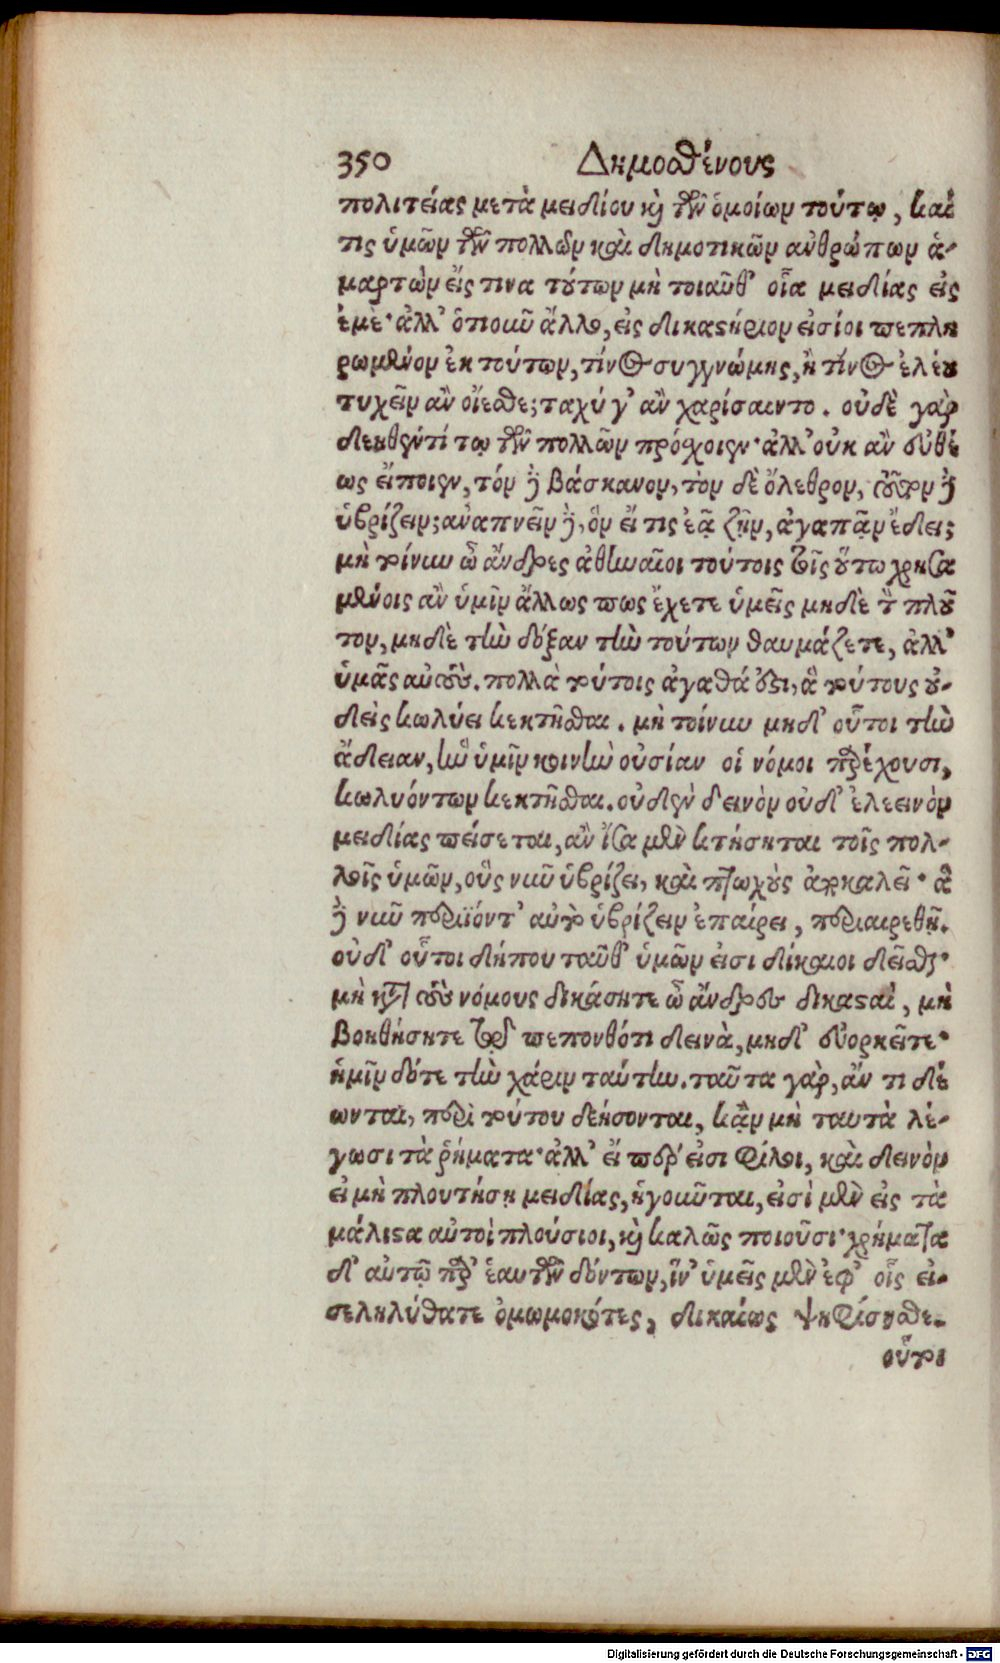 350 Δημοσθένους
πολιτείας μετὰ μειδίου καὶ τῶν ὁμοίων τούτῳ, καί
τις ὑμῶν τῶν πολλῶν καὶ δημοτικῶν ἀνθρώπων ἁ-
μαρτὼν εἴς τινα τούτων μὴ τοιαῦθ᾽ οἷα μειδίας εἰς
ἐμέ· ἀλλ᾽ ὁτιοῦν ἄλλο, εἰς δικαστήριον εἰσίοι πεπλη
ρωμένον ἐκ τούτων, τίνος συγγνώμης, ἢ τίνος ἐλέου
τυχεῖν ἂν οἴεσθε; ταχύ γ᾽ ἂν χαρίσαιντο. οὐδὲ γὰρ
δεηθέντί τῳ τῶν πολλῶν πρόσχοιεν· ἀλλ᾽ οὐκ ἂν εὐθέ
ως εἴποιεν, τόν δὲ βάσκανον, τὸν δὲ ὄλεθρον, τοῦτον δὲ
ὑβρίζειν; ἀναπνεῖν δὲ, ὃν εἴ τις ἐᾷ ζῆν, ἀγαπᾷν ἔδει;
μὴ τοίνυν ὦ ἄνδρες ἀθηναῖοι τούτοις τοῖς οὕτω χρησα
μένοις ἂν ὑμῖν ἄλλως πως ἔχετε ὑμεῖς μηδὲ τὸν πλοῦ
τον, μηδὲ τὴν δόξαν τὴν τούτων θαυμάζετε, ἀλλ᾽
ὑμᾶς αὐτούς. πολλὰ τούτοις ἀγαθά ἐστι, ἃ τούτους οὐ-
δεὶς κωλύει κεκτῆσθαι. μὴ τοίνυν μηδ᾽ οὗτοι τὴν
ἄδειαν, ἣν ὑμῖν κοινὴν οὐσίαν οἱ νόμοι παρέχουσι,
κωλυόντων κεκτῆσθαι. οὐδὲν δεινὸν οὐδ᾽ ἐλεεινὸν
μειδίας πείσεται, ἂν ἴσα μὲν κτήσηται τοῖς πολ-
λοῖς ὑμῶν, οὓς νῦν ὑβρίζει, καὶ πτωχοὺς ἀποκαλεῖ· ἃ
δὲ νῦν περιϊόντ᾽ αὐτὸν ὑβρίζειν ἐπαίρει, περιαιρεθῇ.
οὐδ᾽ οὗτοι δήπου ταῦθ᾽ ὑμῶν εἰσι δίκαιοι δεῖσθαι·
μὴ κατὰ τοὺς νόμους δικάσητε ὦ ἄνδρες δικασταί, μὴ
βοηθήσητε τῷ πεπονθότι δεινὰ, μηδ᾽ εὐορκεῖτε·
ἡμῖν δότε τὴν χάριν ταύτην. ταῦτα γὰρ, ἄν τι δέ
ωνται, περὶ τούτου δεήσονται, κἂν μὴ ταυτὰ λέ-
γωσι τὰ ῥήματα· ἀλλ᾽ εἴπερ εἰσὶ φίλοι, καὶ δεινὸν
εἰ μὴ πλουτήσῃ μειδίας, ἡγοῦνται, εἰσὶ μὲν εἰς τὰ
μάλιστα αὐτοὶ πλούσιοι, καὶ καλῶς ποιοῦσι· χρήματα
δ᾽ αὐτῷ παρ᾽ ἑαυτῶν δόντων, ἵν᾽ ὑμεῖς μὲν ἐφ᾽ οἷς εἰ-
σεληλύθατε ὀμωμοκότες, δικαίως ψηφίσησθε.
οὗτοι
Digitalisierung gefördert durch die Deutsche Forschungsgemeinschaft - DFG